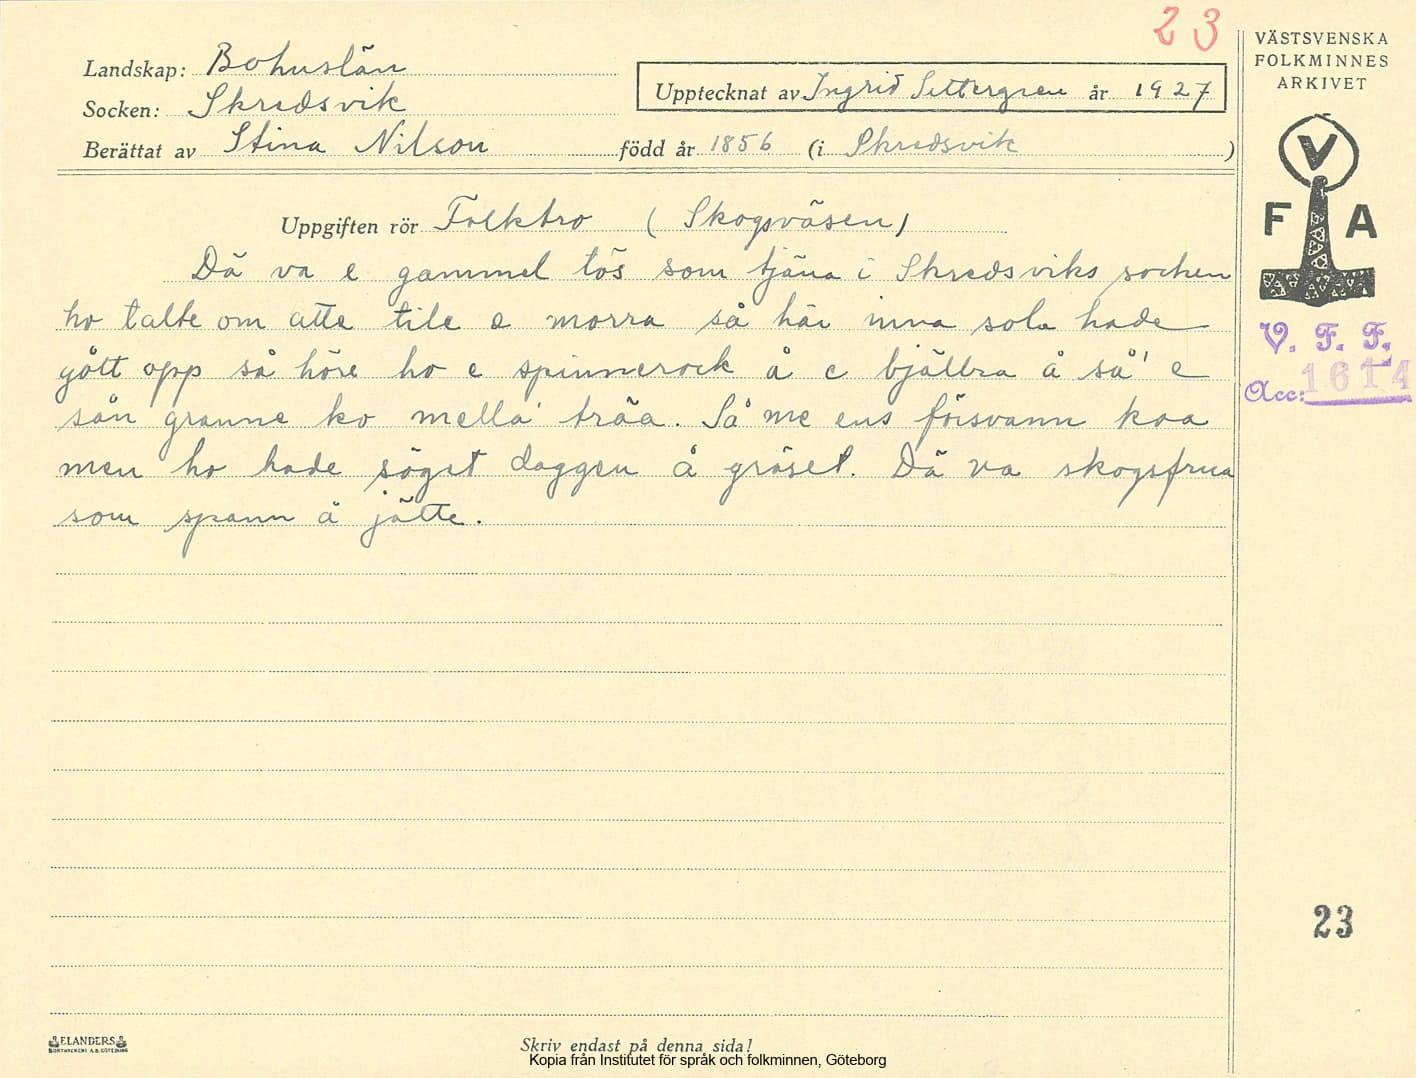 23
Landskap: Bohuslän
Socken: Skredsvik
Berättat av Stina Nilson
Upptecknat av Ingrid Settergren år 1927
född år 1856 (i Skredsvik )
VÄSTSVENSKA
FOLKMINNES
ARKIVET
V
F A
V. F. F.
Acc: 1614
Uppgiften rör Folktro ( Skogsväsen )
Dä va e gammel tös som tjäna i Skredsviks socken
ho talte om atte tile e morra så här inna sola hade
gått opp så höre ho e spinnerock å e bjällra å så' e
sån granne ko mella' träa. Så me ens försvann koa
men ho hade sögat daggen å gräset. Dä va skogsfrua
som spann å jätte.
23
ELANDERS
BOKTRYCKERI A.B. GÖTEBORG
Skriv endast på denna sida!
Kopia från Institutet för språk och folkminnen, Göteborg